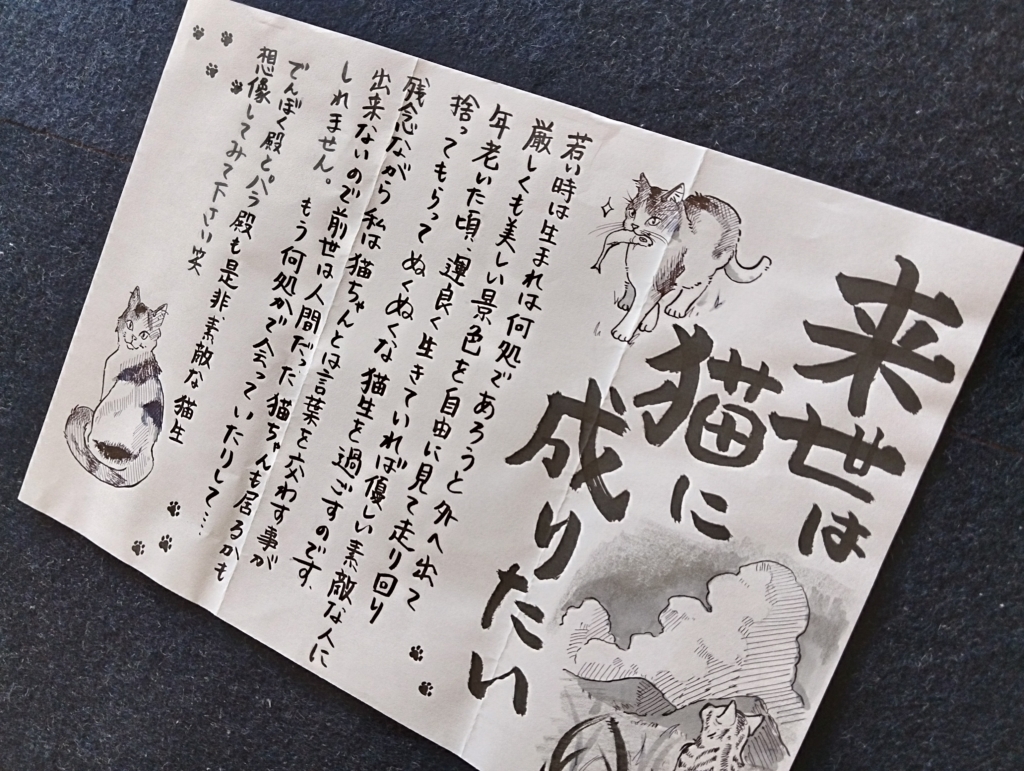 来世は
猫に
成りたい
若い時は生まれは何処であろうと外へ出て
厳しくも美しい景色を自由に見て走り回り
年老いた頃、運良く生きていれば優しい素敵な人に
捨ってもらってぬくぬくな猫生を過ごすのです。
残念ながら私は猫ちゃんとは言葉を交わす事が
出来ないので前世は人間だった猫ちゃんも居るかも
しれません。もう何処かで会っていたりして…
でんぼく殿とパラ殿も是非素敵な猫生
想像してみて下さい笑